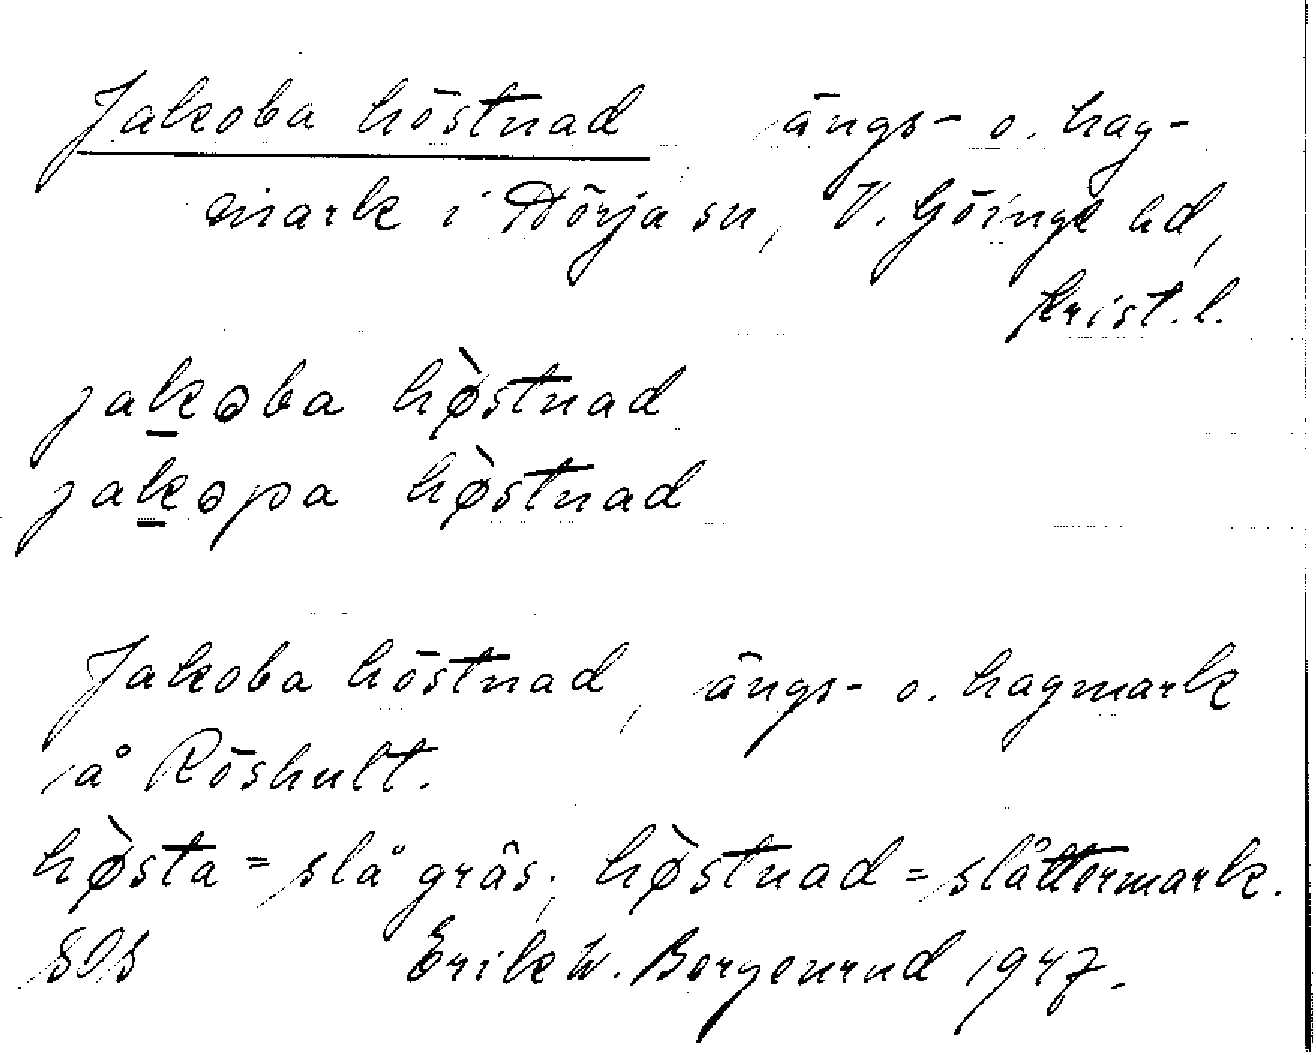 Jakoba höstnad ängs- o. hag-
mark i Nörja sn, V. Göinge hd,
Krist. l.
jakoba hø̀stnad
jakopa hø̀stnad
Jakoba höstnad, ängs- o. hagmark
å Röshult.
hø̀sta = slå gräs; hø̀stnad = slåttermark.
SOS Erik W. Borgenrud 1947.